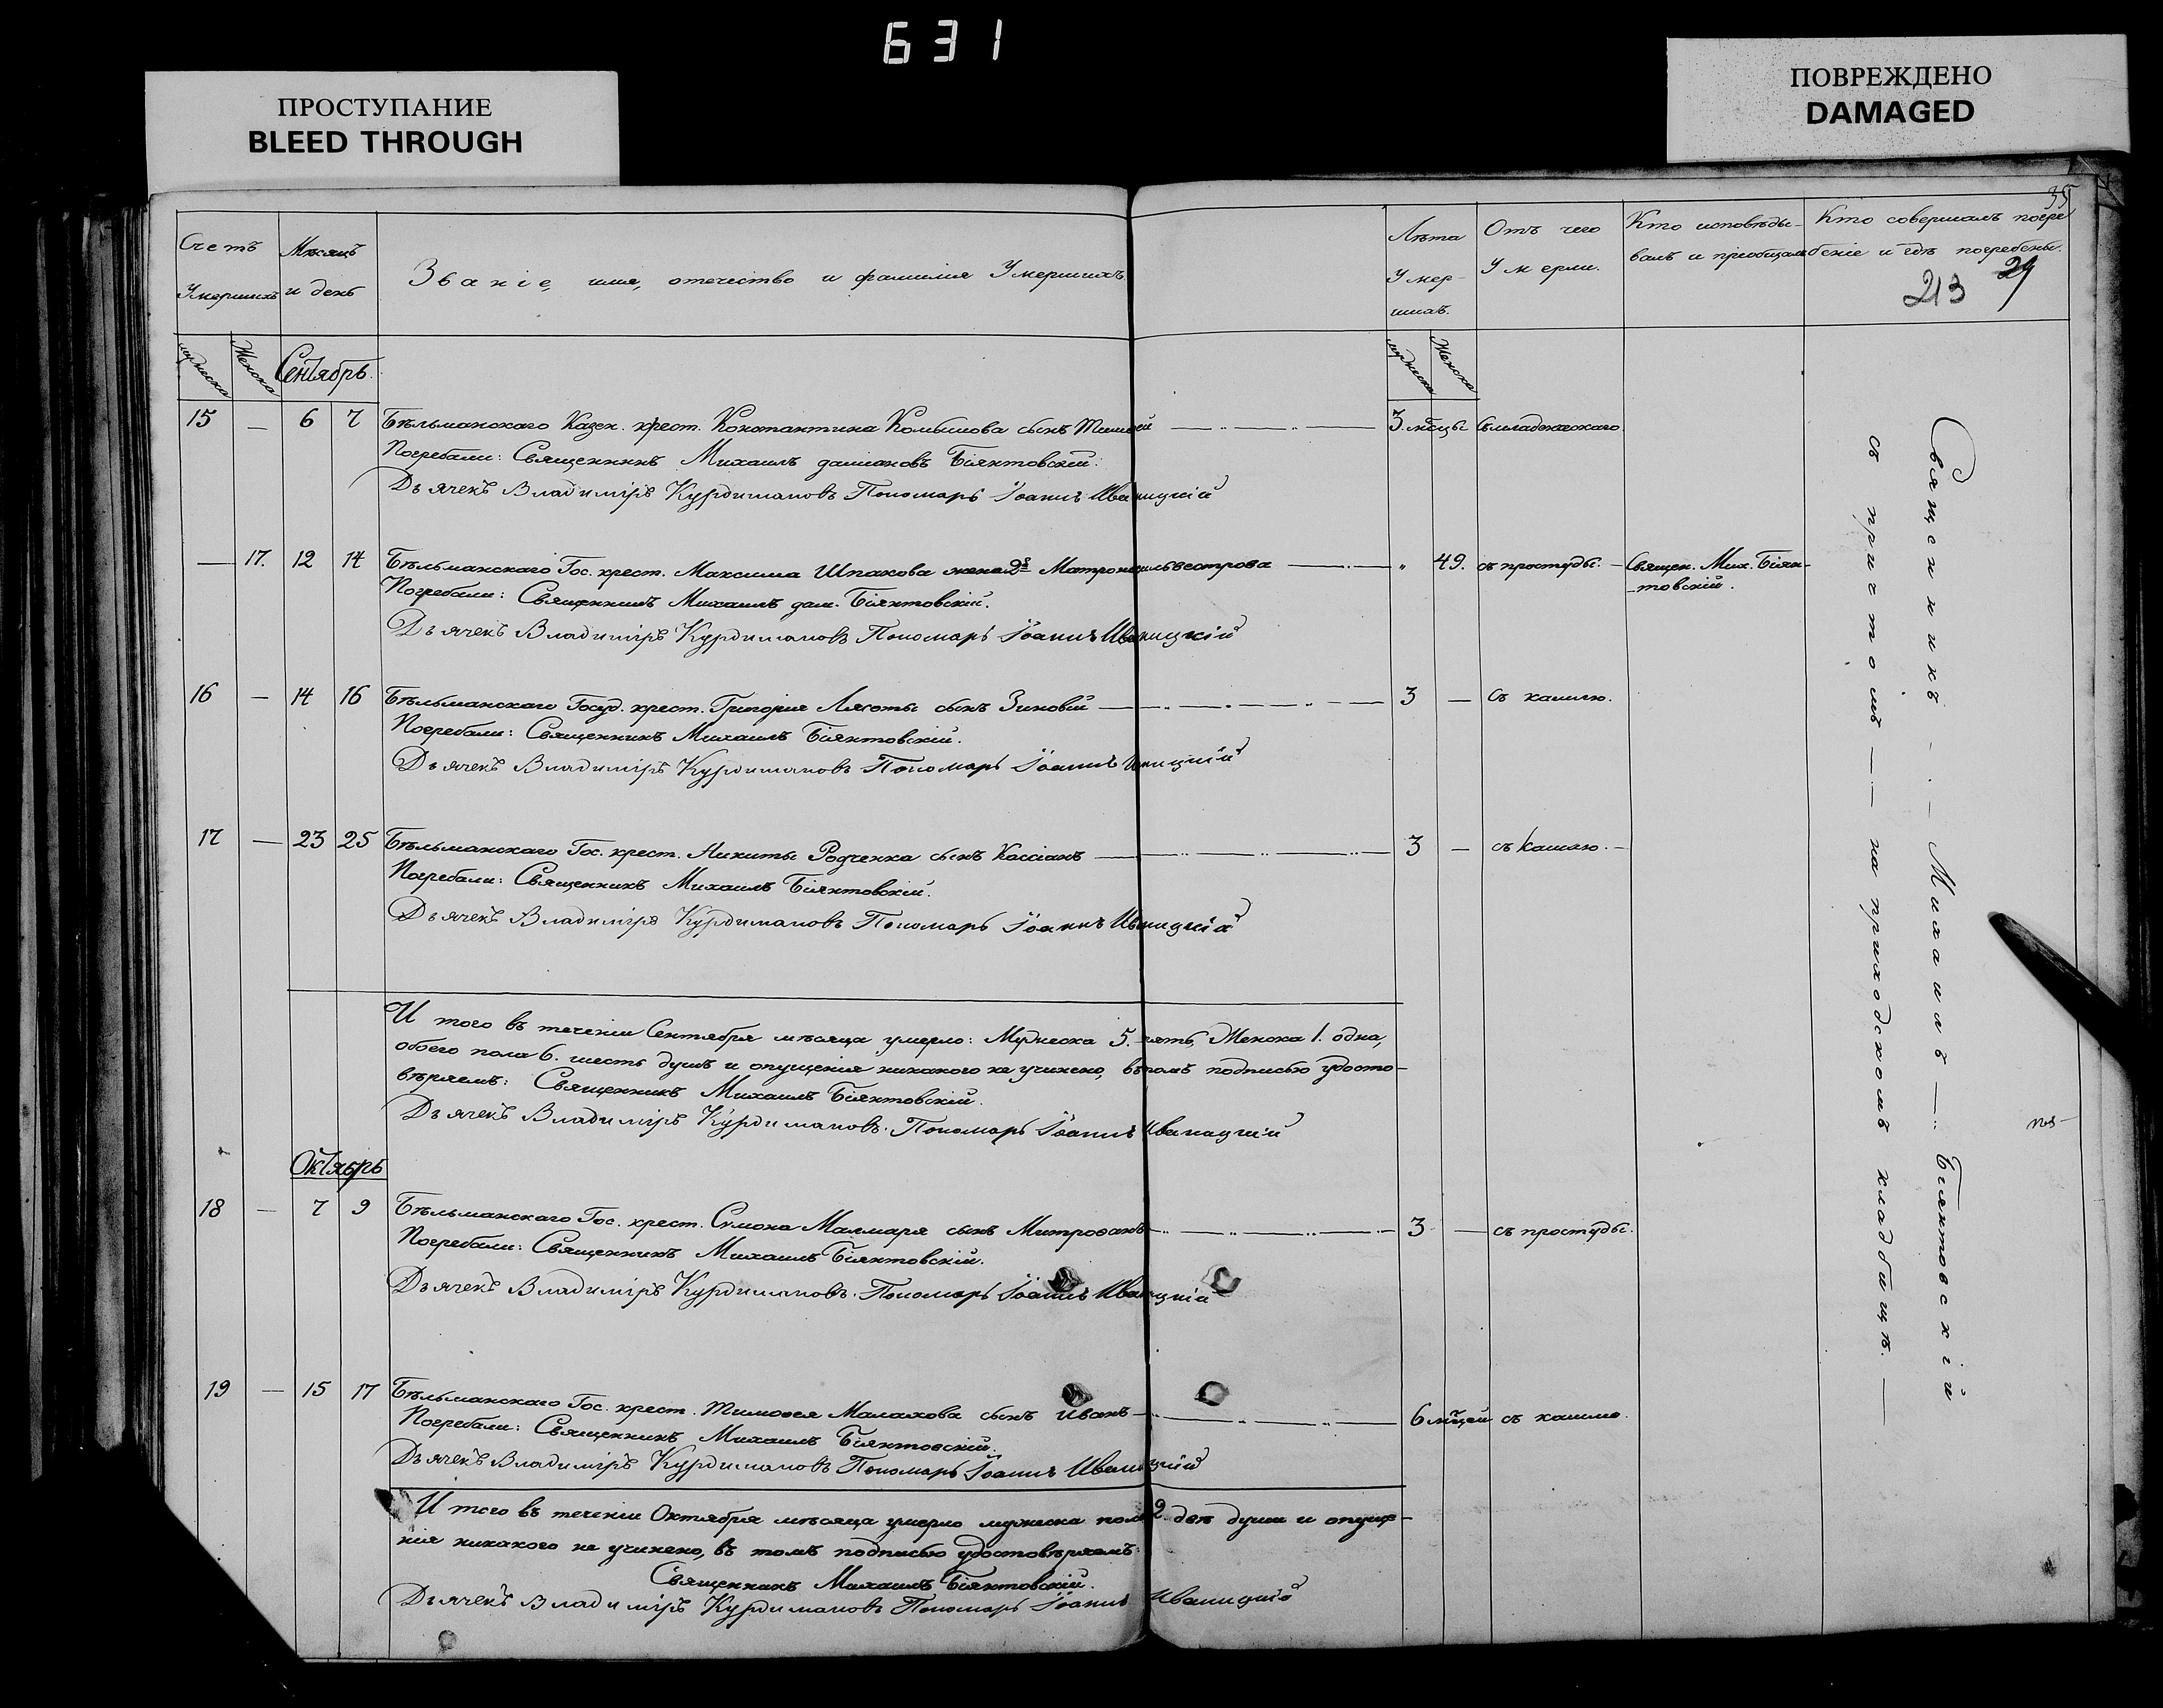 631
ПРОСТУПАНИЕ
BLEED THROUGH
ПОВРЕЖДЕНО
DAMAGED
35
Счетъ Умершихъ
Мѣсяцъ и день
Званіе, имя, отечество и фамилія Умершихъ
Лѣта Умер-
шихъ.
Отъ чего Умерли.
Кто исповѣды-
валъ и пріобщалъ
Кто совершалъ погре
беніе и гдѣ погребены.
213 29
мужеска Женска Сентябрь.
мужеска Женска
15 — 6 7 Бѣльманскаго Казен. крест. Константина сынъ 3. мѣсцы Съ младенческаго
Погребали: Священникъ Михаилъ даміановъ Біянтовскій:
Дьячекъ Владиміръ Курдимановъ Пономарь Іоаннъ Иваницкій
— 17. 12 14 Бѣльманскаго Гос. крест. Максима Шпакова жена 2я „ 49. съ простуды. — Священ. Мих. Біян-
товскій.
Погребали: Священникъ Михаилъ дам. Біянтовскій.
Дьячекъ Владиміръ Курдимановъ Пономарь Іоаннъ Иваницкій
16 — 14 16 Бѣльманскаго Госуд. крест. Григорія Лясоты сынъ Зиновій 3 — Съ кашлю.
Погребали: Священникъ Михаилъ Біянтовскій.
Дьячекъ Владиміръ Курдимановъ Пономарь Іоаннъ Иваницкій
17 — 23 25 Бѣльманскаго Гос. крест. Никиты Родченка сынъ Кассіанъ 3 — съ кашлю. —
Погребали: Священникъ Михаилъ Біянтовскій.
Дьячекъ Владиміръ Курдимановъ Пономарь Іоаннъ Иваницкій
И того въ теченіи Сентября мѣсяца умерло: Мужеска 5. пять, Женска 1. одна,
обоего пола 6. шесть душъ и опущенія никакого не учинено, въ томъ подписью удосто-
вѣряемъ: Священникъ Михаилъ Біянтовскій.
Дьячекъ Владиміръ Курдимановъ. Пономарь Іоаннъ Иваницкій
Октябрь
18 — 7 9 Бѣльманскаго Гос. крест. Симона сынъ Митрофанъ 3 — съ простуды.
Погребали: Священникъ Михаилъ Біянтовскій.
Дьячекъ Владиміръ Курдимановъ. Пономарь Іоаннъ Иваницкій
19 — 15 17 Бѣльманскаго Гос. крест. Тимофея Малахова сынъ Иванъ 6 мѣцей съ кашлю.
Погребали: Священникъ Михаилъ Біянтовскій.
Дьячекъ Владиміръ Курдимановъ Пономарь Іоаннъ Иваницкій
И того въ теченіи Октября мѣсяца умерло мужеска пола 2. двѣ души и опуще-
нія никакого не учинено, въ томъ подписью удостовѣряемъ:
Священникъ Михаилъ Біянтовскій.
Дьячекъ Владиміръ Курдимановъ Пономарь Іоаннъ Иваницкій
Священникъ — Михаилъ — Біянтовскій
съ причтомъ — на приходскомъ кладбищѣ. —